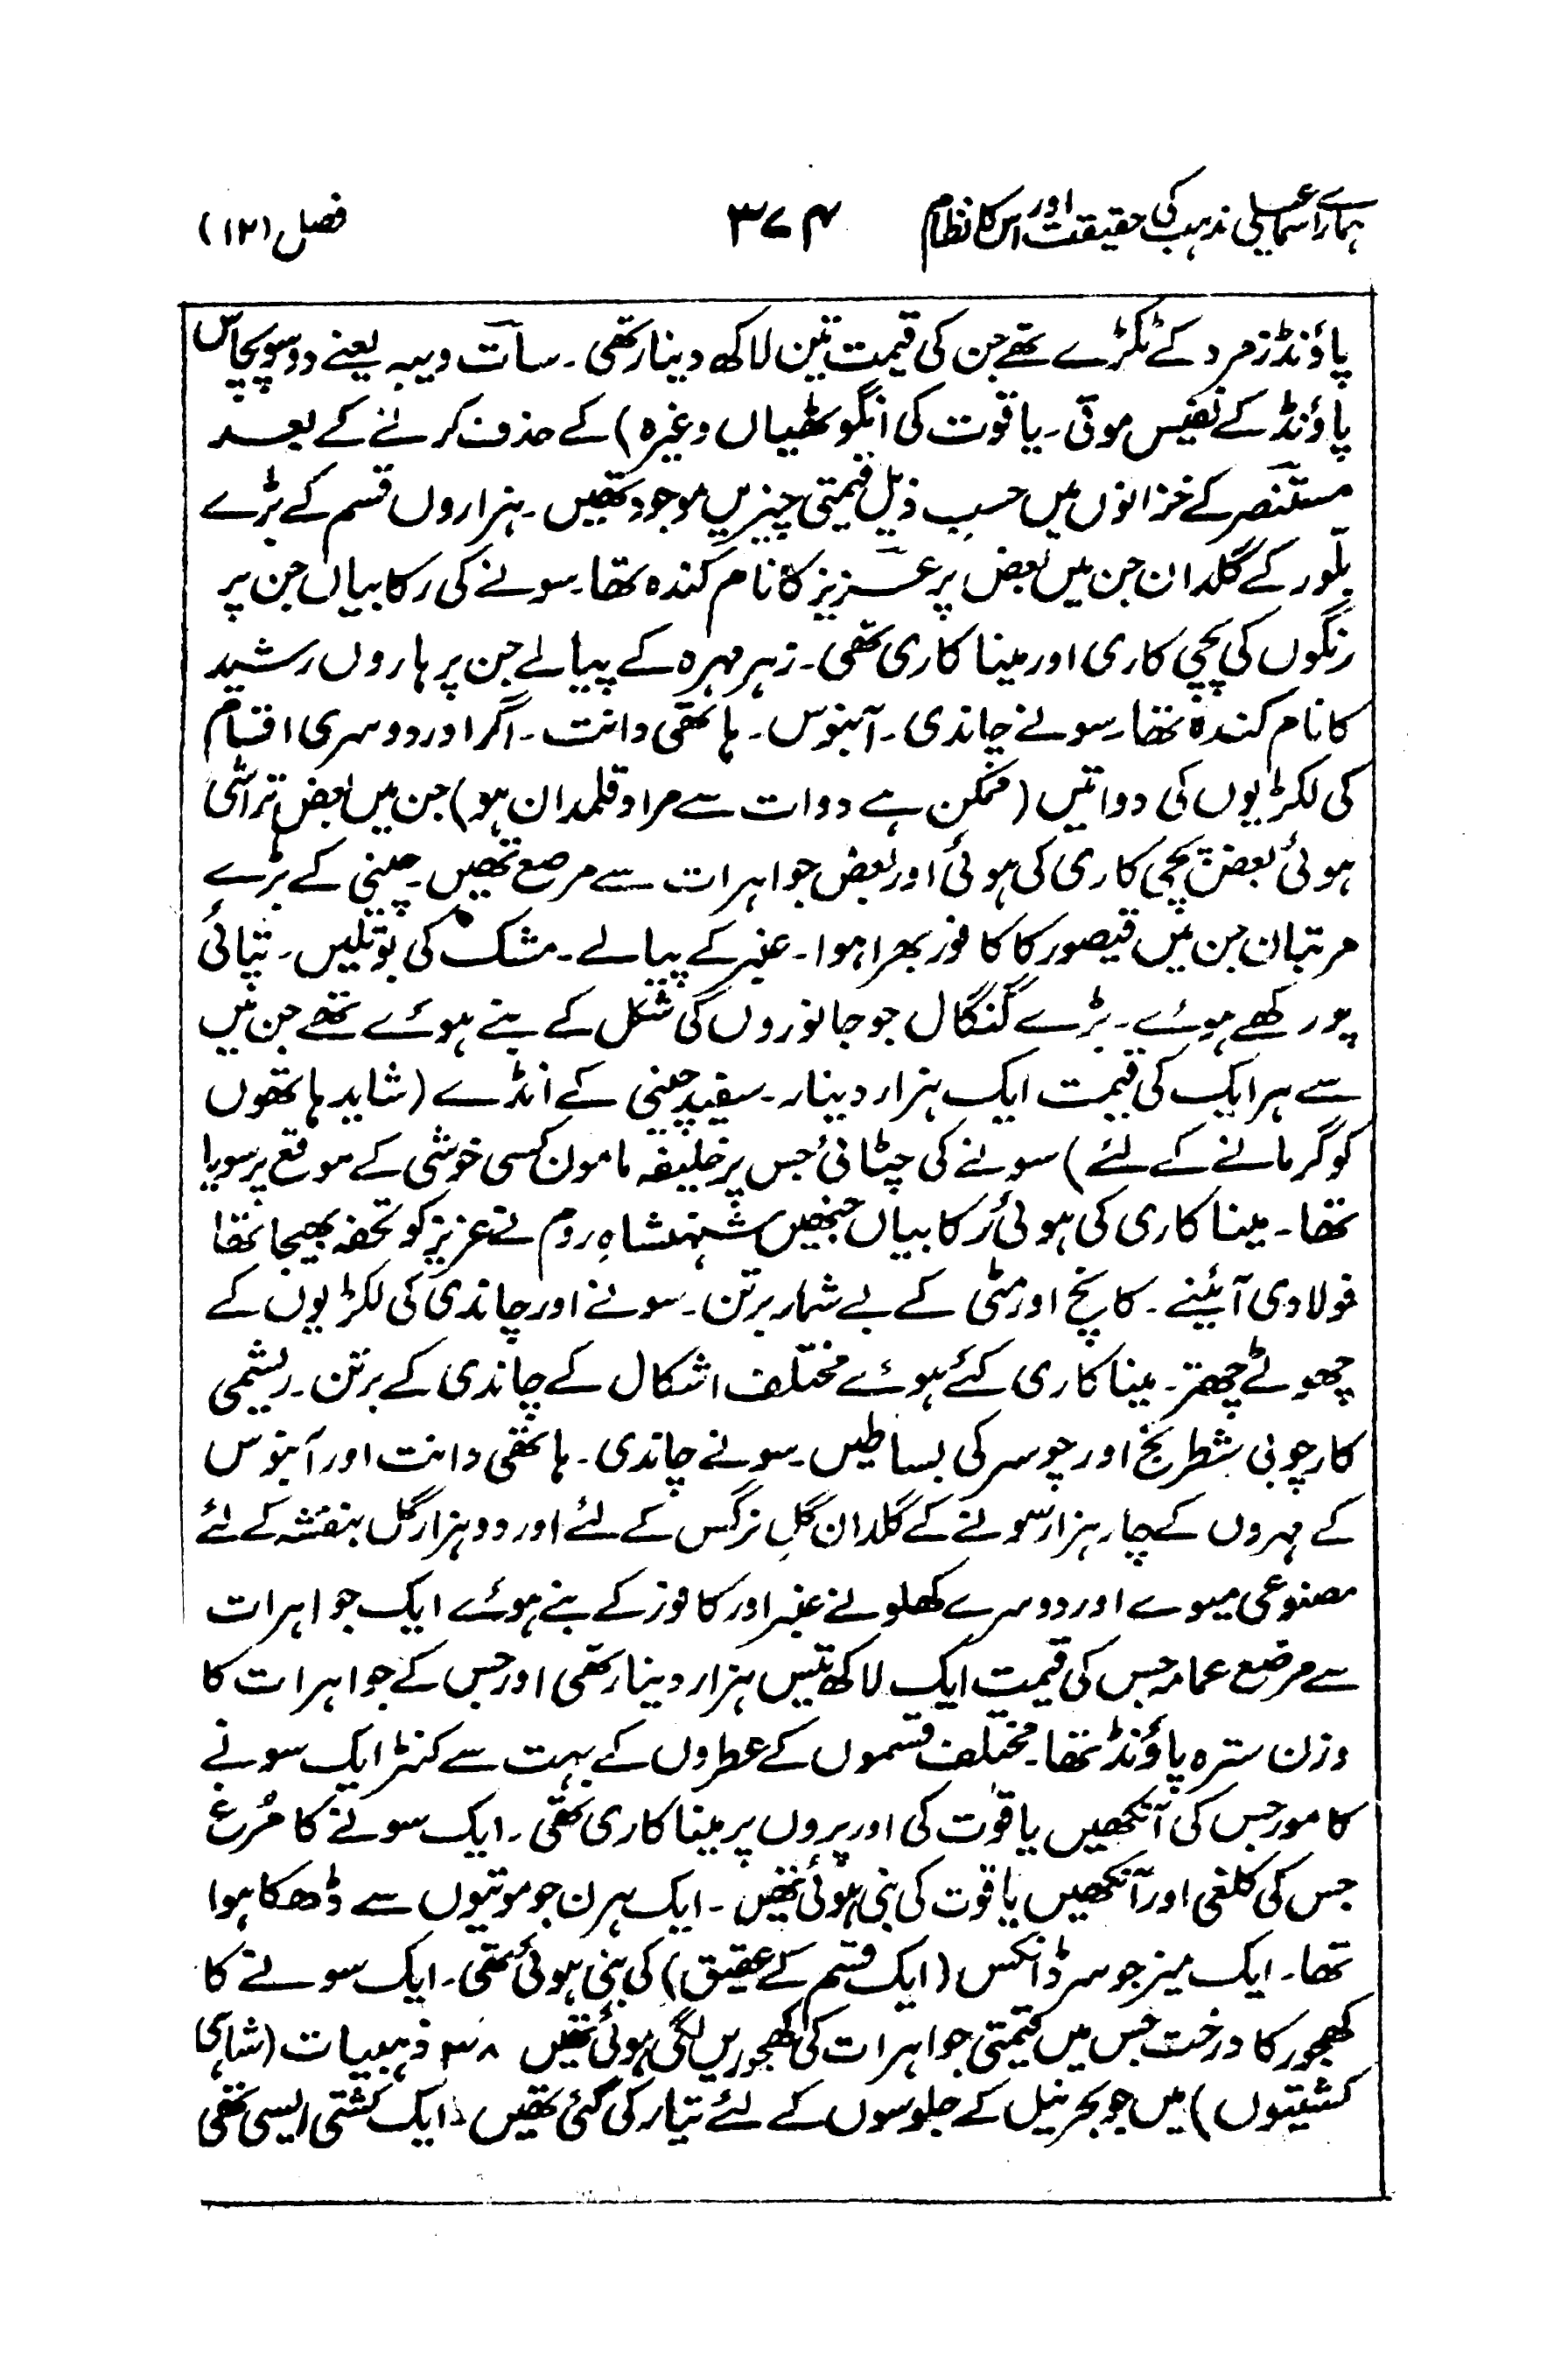 ہمارے اسماعیلی مذہب کی حقیقت اور اس کا نظام ۳۷۴ فصل (۱۲)
پاؤنڈ زمرد کے ٹکڑے تھے جن کی قیمت تین لاکھ دینار تھی۔ سات ویبہ یعنے دو سو پچاس
پاؤنڈ کے نفیس موتی۔ یاقوت کی انگوٹھیاں وغیرہ) کے حذف کرنے کے بعد
مستنصر کے خزانوں میں حسب ذیل قیمتی چیزیں موجود تھیں۔ ہزاروں قسم کے بڑے
بلّور کے گلدان جن میں بعض پر عزیز کا نام کندہ تھا۔ سونے کی رکابیاں جن پر
رنگوں کی پچی کاری اور مینا کاری تھی۔ زہر مہرہ کے پیالے جن پر ہاروں رشید
کا نام کندہ تھا۔ سونے چاندی۔ آبنوس۔ ہاتھی دانت۔ اگر اور دوسری اقسام
کی لکڑیوں کی دواتیں (ممکن ہے دوات سے مراد قلمدان ہو) جن میں بعض تراشی
ہوئی بعض پچی کاری کی ہوئی اور بعض جواہرات سے مرصع تھیں۔ چینی کے بڑے
مرتبان جن میں قیصور کا کافور بھرا ہوا۔ عنبر کے پیالے۔ مشک کی بوتلیں۔ تپائی
پور کھے ہوئے۔ بڑے گنگال جو جانوروں کی شکل کے بنے ہوئے تھے جن میں
سے ہر ایک کی قیمت ایک ہزار دینار۔ سفید چینی کے انڈے (شاید ہاتھوں
کو گرمانے کے لئے) سونے کی چٹائی جس پر خلیفہ مامون کسی خوشی کے موقع پر سویا
تھا۔ مینا کاری کی ہوئی رکابیاں جنھیں شہنشاہِ روم نے عزیز کو تحفہ بھیجا تھا
فولادی آئینے۔ کانچ اور مٹی کے بے شمار برتن۔ سونے اور چاندی کی لکڑیوں کے
چھوٹے چھتر۔ مینا کاری کئے ہوئے مختلف اشکال کے چاندی کے برتن۔ ریشمی
کارچوبی شطرنج اور چوسر کی بساطیں۔ سونے چاندی۔ ہاتھی دانت اور آبنوس
کے مہروں کے چار ہزار سونے کے گلدان گلِ نرگس کے لئے اور دو ہزار گل بنفشہ کے لئے
مصنوعی میوے اور دوسرے کھلونے عنبر اور کافور کے بنے ہوئے ایک جواہرات
سے مرصع عمامہ جس کی قیمت ایک لاکھ تیس ہزار دینار تھی اور جس کے جواہرات کا
وزن سترہ پاؤنڈ تھا۔ مختلف قسموں کے عطروں کے بہت سے کنٹر ایک سونے
کا مور جس کی آنکھیں یاقوت کی اور پروں پر مینا کاری تھی۔ ایک سونے کا مُرغ
جس کی کلغی اور آنکھیں یاقوت کی بنی ہوئی تھیں۔ ایک ہرن جو موتیوں سے ڈھکا ہوا
تھا۔ ایک میز جو سرڈانکس (ایک قسم کے عقیق) کی بنی ہوئی تھی۔ ایک سونے کا
کھجور کا درخت جس میں قیمتی جواہرات کی کھجوریں لگی ہوئی تھیں ۳۸ ذہبیات (شاہی
کشتیوں) میں جو بحر نیل کے جلوسوں کے لئے تیار کی گئی تھیں۔ ایک کشتی ایسی تھی